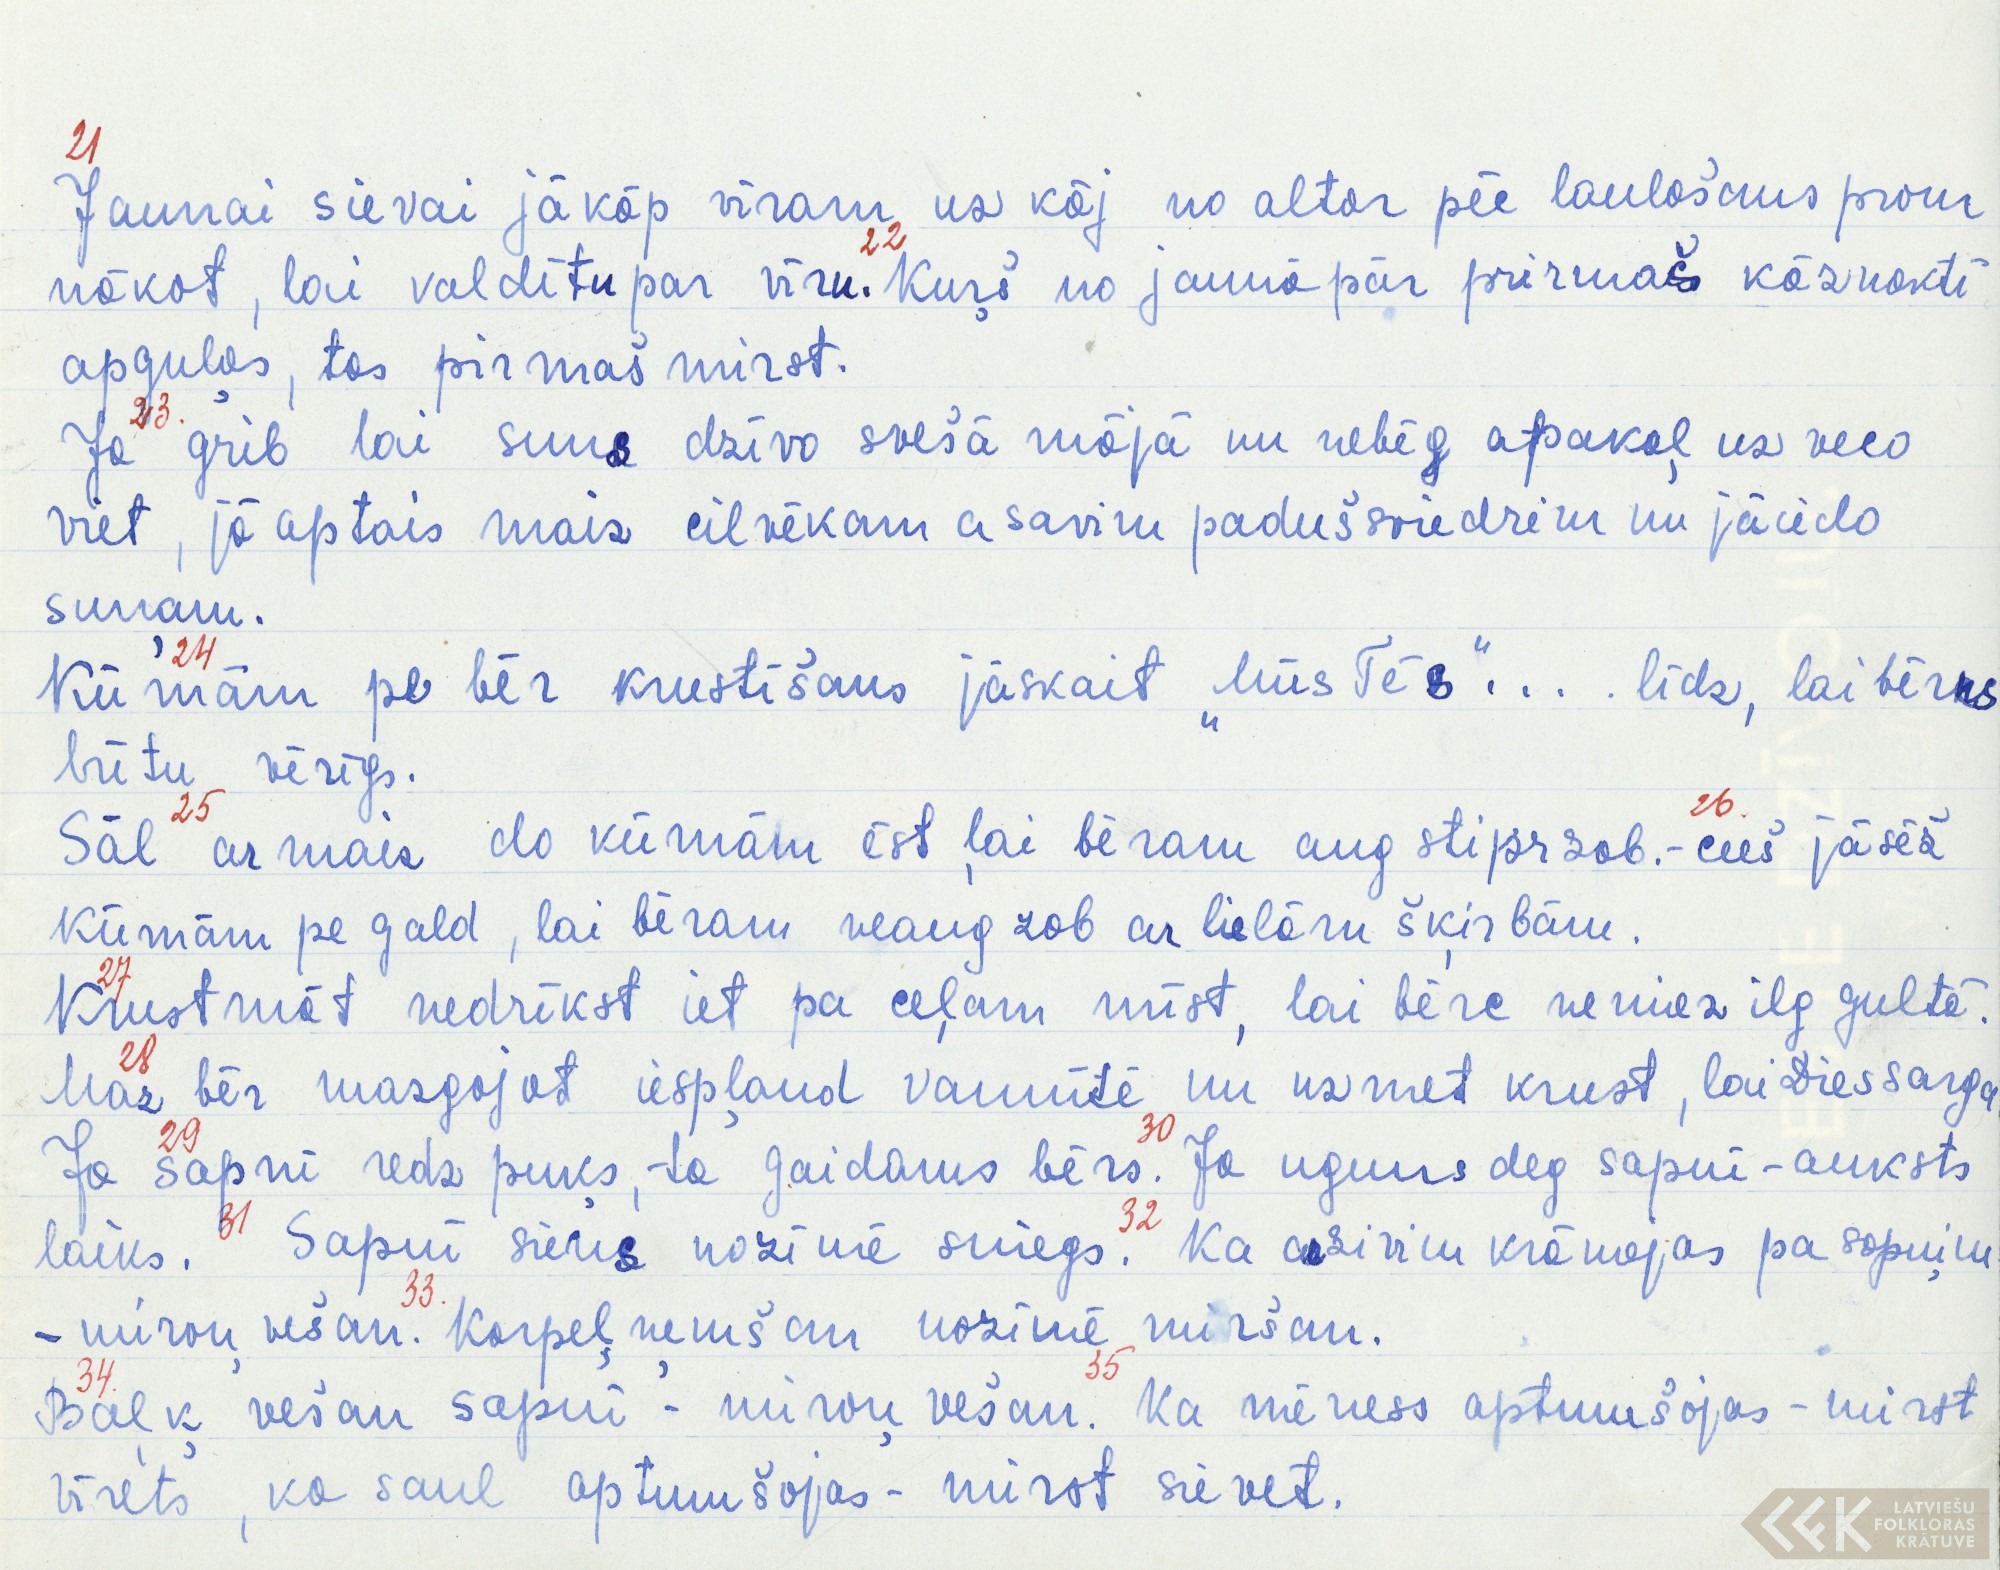 21
Jaunai sievai jākāp vīram uz kāj no altar pēc laulašans prom
nākot, lai valdītu par vīru. 22 Kuŗš no jaunā pār pirmač kāznaktī
apguļas, tas pirmaš mirst.
Ja 23. grib lai suns dzīvo svešā mājā un nebēg atpakaļ uz veco
viet, jā aptais maiz cilvēkam a savim padušsviedrim un jāiedo
sunam.
24
Kūmām pe bēr krustīšans jāskait „Mūs Tēs“.... līdz, lai bērns
būtu vērīgs.
Sāl 25 ar maiz do kūmām ēst, lai bēram aug stipr zob. - 26. cieš jāsēž
kūmām pe gald, lai bēram neaug zob ar lielām šķirbām.
27
Krustmāt nedrīkst iet pa ceļam mīst, lai bērc nemiez ilg gultē.
28
Maz bēr mazgājot iespļaud vannītē un uzmet krust, lai Dies sarga
Ja 29 sapnī redz puķs, - ta gaidams bērs. 30 Ja uguns deg sapnī - auksts
laiks. 31 Sapnī siens nozīmē sniegs. 32 Ka ar zivim krāmejas pa sapņim
- miroņ vešan. 33. Karpeļ ņemšan nozīmē miršan.
34.
Baļķ vešan sapnī - miroņ vešan. 35 Ka mēness aptumšojas - mirst
vīrets, ka saul aptumšojas - mirst sievet.
LATVIEŠU
FOLKLORAS
KRĀTUVE